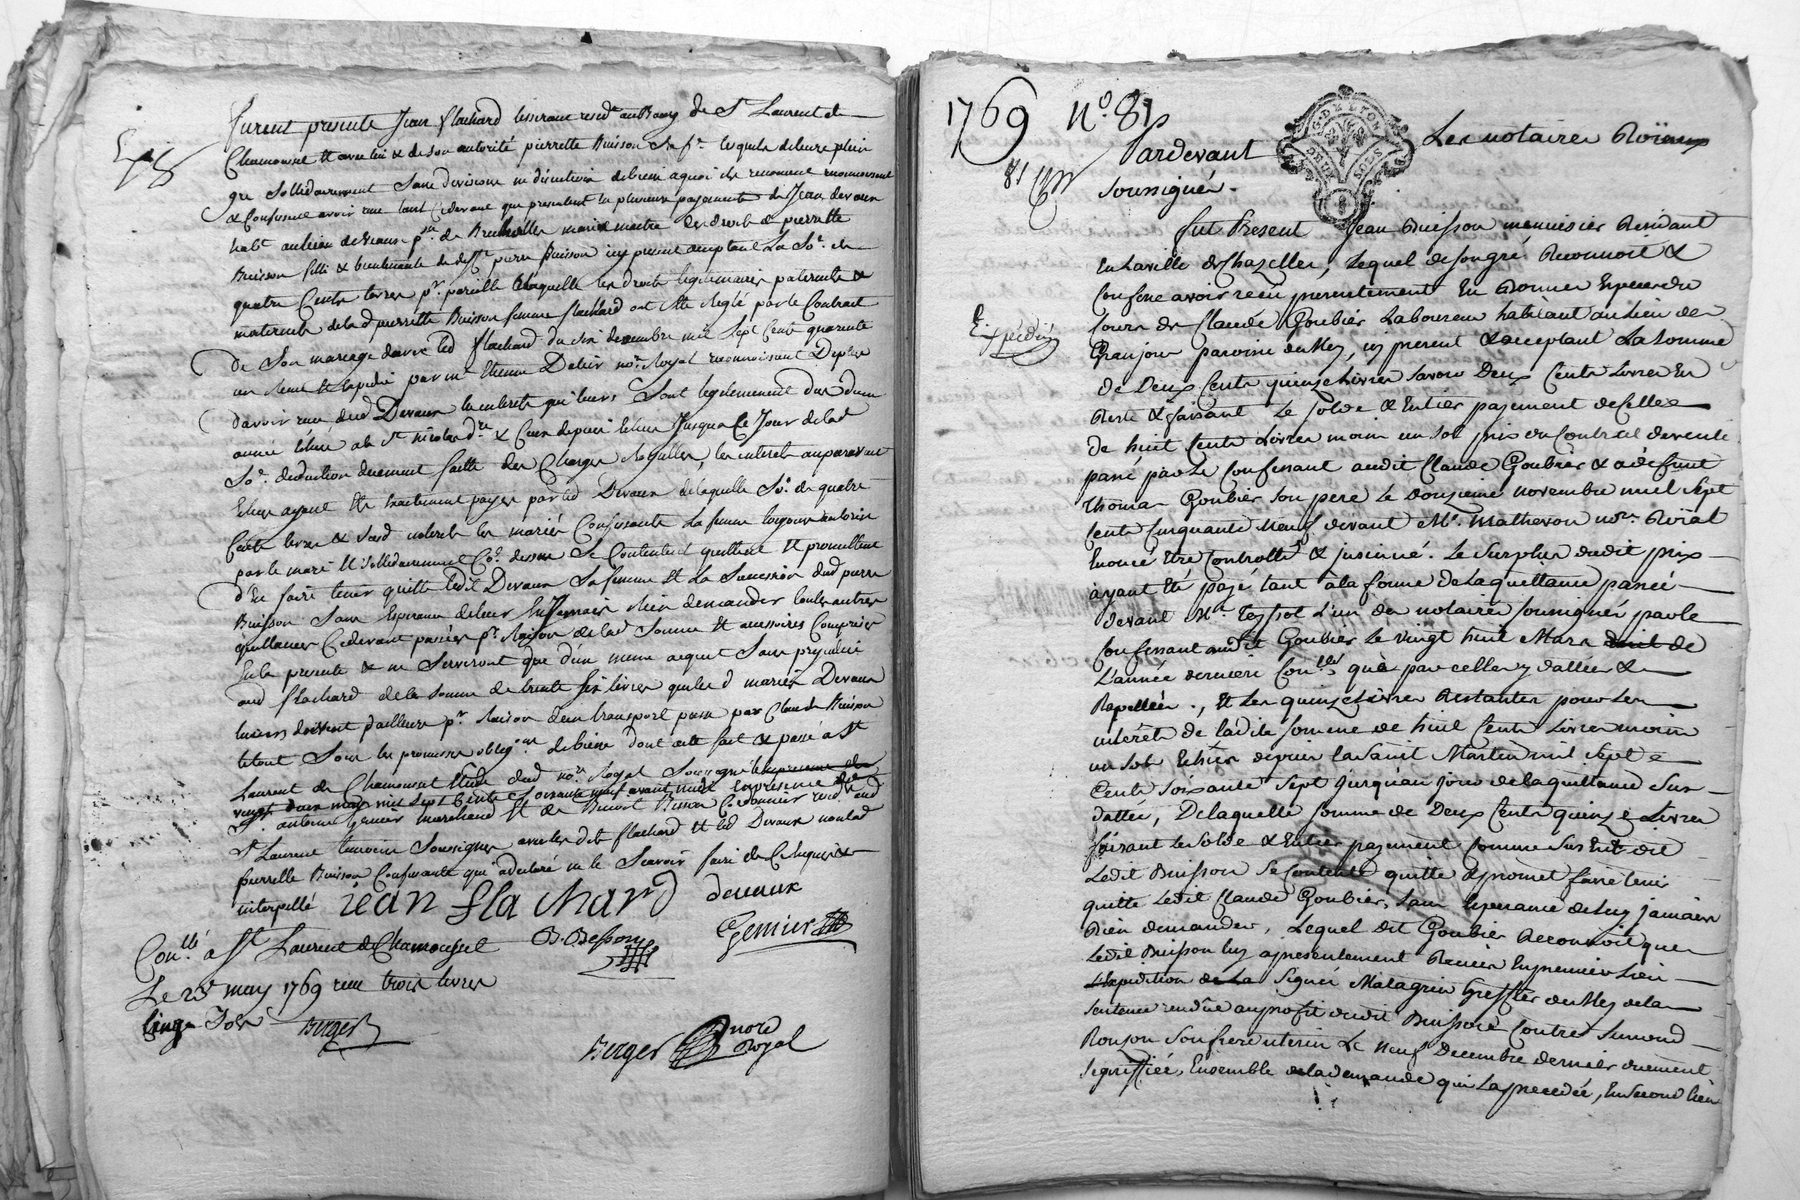 furent presents Jean flachard tisserant resid.t au Bourg de St Laurent de
Chamousset & avec lui & de son autorité pierrette Buisson sa f.e lesquels de leur plein
gré Sollidairement Sans division ni discution de biens a quoi ils renoncent
& Confessent avoir reçu tant Cydevant que presentement en plusieurs payements de Jean devaux
hab.t au lieu de devaux p.sse de Brullioles mari & maitre des droits de pierrette
Buisson icy present acceptant La So.e de
quatre Cents livres p.r pareille a laquelle les droits legitimaires paternels &
maternels de lad pierrette Buisson femme flachard ont été Reglé par le Contrat
de Son mariage d'avec led flachard du six decembre mil Sept Cent quarente
un reçu et expedié par m.e Etienne not.re Royal reconnoissant De plus
d'avoir reçu dud Devaux les interets qui leurs Sont legitimement dus d'une
année echue a la St nicolas d.re & Ceux depuis echus Jusqua Ce Jour de lad
So.e deduction duement faitte des Charges Royalles, les interets auparavant
Echus ayant été exactement payés par led Devaux de laquelle So.e de quatre
Cents livres & Sesd interets les mariés Confessants La femme toujours autorisée
par le mari et sollidairement Co.e dessus Se Contentent quittent et promettent
d'En faire tenir quitte ledit Devaux Sa femme et La Succession dud pierre
Buisson Sans Esperance de leur En Jamais Rien demander toutes autres
quittances Cydevant passées p.r Raison de lad Somme et accessoires Comprises
En la presente & ne Serviront que d'un meme acquit Sans prejudice
aud flachard de la Somme de trente six livres que les d mariés Devaux
luy doivent d'ailleurs p.r Raison d'un transport passé par Claude Buisson
le tout Sous les promesses oblig.ons de biens dont acte fait & passé a St
Laurent de Chamousset Etude dud no.re Royal Soussigné
vingt mars mil sept Cents Soixante neuf avant midi En presence de
S.r antoine genier marchand et de Benoit Besson Cordonnier resid.ts aud
St Laurent temoins Soussignes avec les dits flachard et led Devaux non lad
pierrette Buisson Confessante qui a declaré ne le Scavoir faire de Ce Enquise &
interpellé jean flachard devaux
B. Besson Genier
Con.llé a St Laurent de Chamousset
Le 23 mars 1769 reçu trois livres
cinq Sols Berger
Berger nore
Royal
1769 N.o 81
81
G. DE LYON
DEUX SOLS
Pardevant Les notaires Roïaux
soussignés.
fut Present Jean Buisson menuisier Residant
En La ville de Chazelles, Lequel de son gré, Reconnoit &
Confesse avoir recu presentement En Bonnes Especes du
Cours de Claude Goubier Laboureur habitant au Lieu de
Expedié
Granjour paroisse de Meys, icy present & acceptant La somme
de Deux Cents quinze Livres savoir Deux Cents Livres En
Reste & faisant Le solde & Entier payement de Celle
de huit Cents Livres moins un sol prix du Contract de vente
passé par Le Confessant audit Claude Goubier & a défunt
Thomas Goubier son pere Le Douzieme novembre mil sept
Cents Cinquante Neuf devant M.e Matheron no.re Roïal
Enoncé Etre Controllé & insinué. Le surplus dudit prix
ayant Eté payé tant a la forme de La quittance passée
devant M.e Teyssot L'un des notaires soussignés par Le
Confessant audit Goubier Le vingt huit Mars de
L'année derniere Con.llée qu'a par celles y dattées &
Rapellées., Et Les quinze Livres Restantes pour Les
interêts de ladite somme de huit Cents Livres moins
un sol Echus depuis La Saint Martin mil sept
Cents soixante sept jusqu'au jour de la quittance Sus
dattée, De laquelle somme de Deux Cents quinze Livres
faisant Le Solde & Entier payement Comme Sus Est dit
Ledit Buisson Se Contente quitte & promet faire tenir
quitte Ledit Claude Goubier, sans Esperance de Luy jamais
Rien demander, Lequel dit Goubier Reconnoit que
Ledit Buisson luy a presentement Remis En premier Lieu
L'expedition de La Signée Malagrin Greffier de Meys de la
Sentence rendüe au profit dudit Buisson Contre Simond
Ronzon Le neuf Decembre dernier duement
Signiffiée, Ensemble de la demande qui La precedée, En second lieu